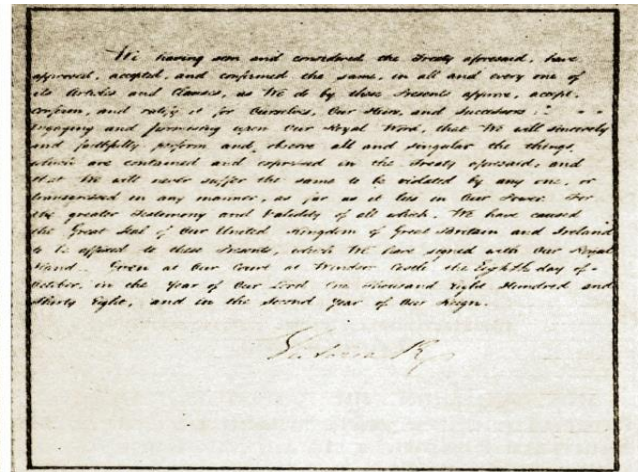 We having seen and considered the Treaty aforesaid, have
approved, accepted, and confirmed the same, in all and every one of
its Articles and Clauses, as We do by these Presents approve, accept,
confirm, and ratify it for Ourselves, Our Heirs, and Successors :
Engaging and promising upon Our Royal Word, that We will sincerely
and faithfully perform and observe all and singular the things,
which are contained and expressed in the Treaty aforesaid, and
that We will never suffer the same to be violated by any one, or
transgressed in any manner, as far as it lies in Our Power. For
the greater Testimony and Validity of all which, We have caused
the Great Seal of Our United Kingdom of Great Britain and Ireland
to be affixed to these Presents, which We have signed with Our Royal
Hand. Given at Our Court at Windsor Castle the Eighth day of
October, in the Year of Our Lord One Thousand Eight Hundred and
Thirty Eight, and in the Second Year of Our Reign.
Victoria R